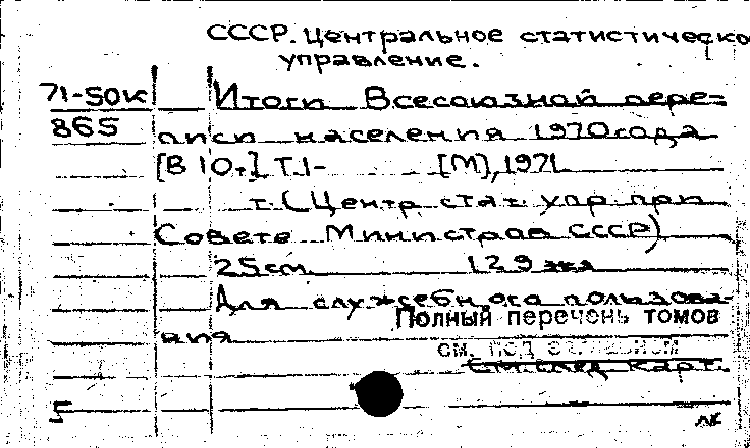 СССР. Центральное статистическо
управление.
71-50к Итоги Всесоюзной пере=
865 писи населения 1970 года
[В 10т.] Т.1- [М], 1971
т. (Центр. стат. упр. при
Совете Министров СССР)
25см. 129 экз
Для служебного пользова-
ния
Полный перечень томов
см. под
См. след. карт.